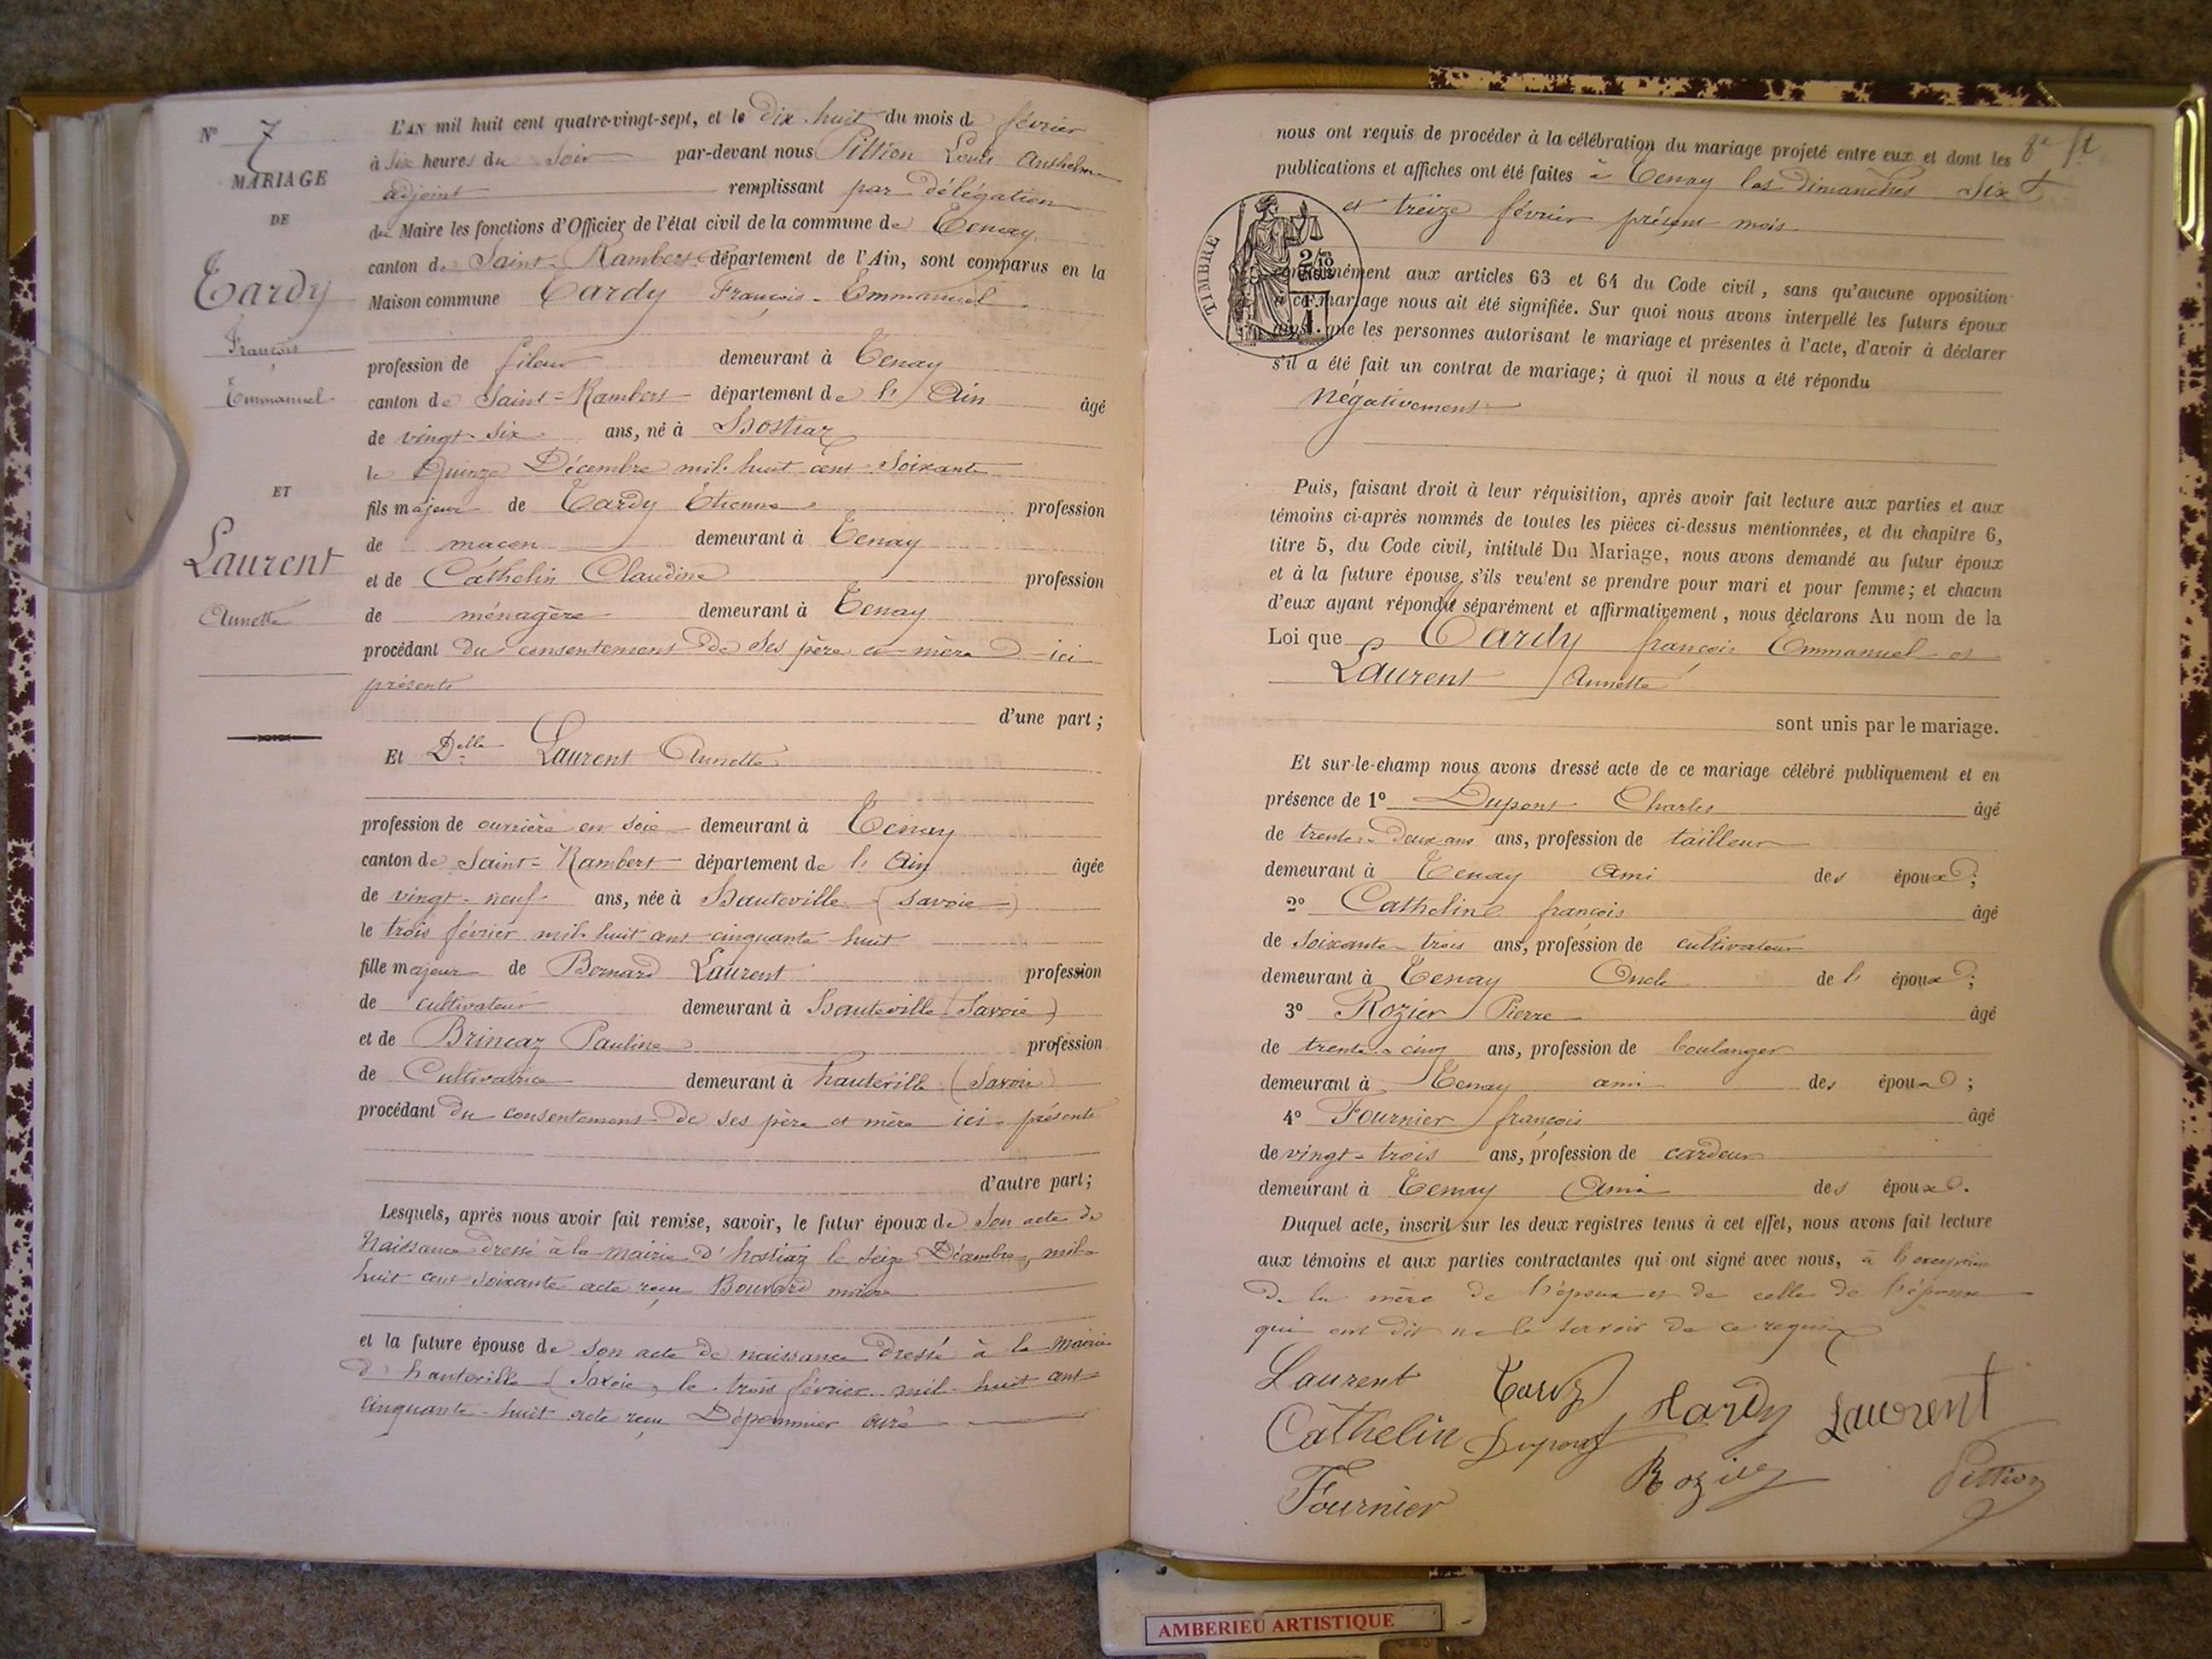 N° 7
MARIAGE
DE
Tardy
François
Emmanuel
ET
Laurent
Annette
L'AN mil huit cent quatre-vingt-sept, et le dix-huit du mois de février
à six heures du soir par-devant nous Pittion Louis Anthelme
adjoint remplissant par délégation
du Maire les fonctions d'Officier de l'état civil de la commune de Tenay
canton de Saint-Rambert département de l'Ain, sont comparus en la
Maison commune Tardy François-Emmanuel
profession de fileur demeurant à Tenay
canton de Saint-Rambert département de l'Ain âgé
de vingt-six ans, né à Hostiaz
le Quinze Décembre mil huit cent soixante
fils majeur de Tardy Étienne profession
de maçon demeurant à Tenay
et de Cathelin Claudine profession
de ménagère demeurant à Tenay
procédant du consentement de ses père et mère ici
présents
d'une part ;
Et Delle Laurent Annette
profession de ouvrière en soie demeurant à Tenay
canton de Saint-Rambert département de l'Ain âgée
de vingt-neuf ans, née à Hauteville (Savoie)
le trois février mil huit cent cinquante huit
fille majeure de Bernard Laurent profession
de cultivateur demeurant à Hauteville (Savoie)
et de Brincaz Pauline profession
de Cultivatrice demeurant à hauteville (Savoie)
procédant du consentement de ses père et mère ici présents
d'autre part ;
Lesquels, après nous avoir fait remise, savoir, le futur époux de son acte de
Naissance dressé à la mairie d'hostiaz le seize Décembre, mil
huit cent soixante acte reçu Bouvard maire
et la future épouse de son acte de naissance dressé à la Mairie
d'hauteville (Savoie) le trois février mil huit cent
cinquante-huit acte reçu Dépommier curé
nous ont requis de procéder à la célébration du mariage projeté entre eux et dont les
publications et affiches ont été faites à Tenay les dimanches six
et treize février présent mois
TIMBRE
conformément aux articles 63 et 64 du Code civil, sans qu'aucune opposition
à ce mariage nous ait été signifiée. Sur quoi nous avons interpellé les futurs époux
ainsi que les personnes autorisant le mariage et présentes à l'acte, d'avoir à déclarer
s'il a été fait un contrat de mariage ; à quoi il nous a été répondu
Négativement
Puis, faisant droit à leur réquisition, après avoir fait lecture aux parties et aux
témoins ci-après nommés de toutes les pièces ci-dessus mentionnées, et du chapitre 6,
titre 5, du Code civil, intitulé Du Mariage, nous avons demandé au futur époux
et à la future épouse s'ils veulent se prendre pour mari et pour femme ; et chacun
d'eux ayant répondu séparément et affirmativement, nous déclarons Au nom de la
Loi que Tardy françois Emmanuel et
Laurent Annette
sont unis par le mariage.
Et sur-le-champ nous avons dressé acte de ce mariage célébré publiquement et en
présence de 1° Dupont Charles âgé
de trente-deux ans ans, profession de tailleur
demeurant à Tenay Ami des époux ;
2° Catheline françois âgé
de soixante-trois ans, profession de cultivateur
demeurant à Tenay Oncle de l'époux ;
3° Rozier Pierre âgé
de trente-cinq ans, profession de boulanger
demeurant à Tenay ami des époux ;
4° Fournier françois âgé
de vingt-trois ans, profession de cardeur
demeurant à Tenay Ami des époux.
Duquel acte, inscrit sur les deux registres tenus à cet effet, nous avons fait lecture
aux témoins et aux parties contractantes qui ont signé avec nous, à l'exception
de la mère de l'époux et de celle de l'épouse
qui ont dit ne le savoir de ce requis
Laurent Tardy Tardy Laurent
Cathelin Dupont
Fournier Rozier Pittion
AMBERIEU ARTISTIQUE